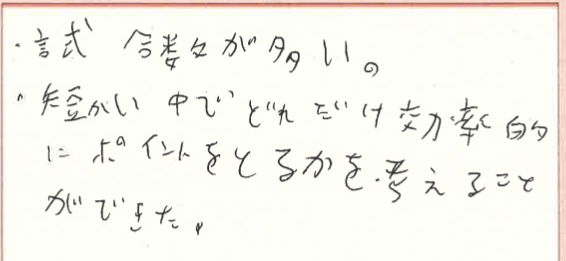 ・試合数が多い。
・短かい中でどれだけ効率的
にポイントをとるかを考えること
ができた。